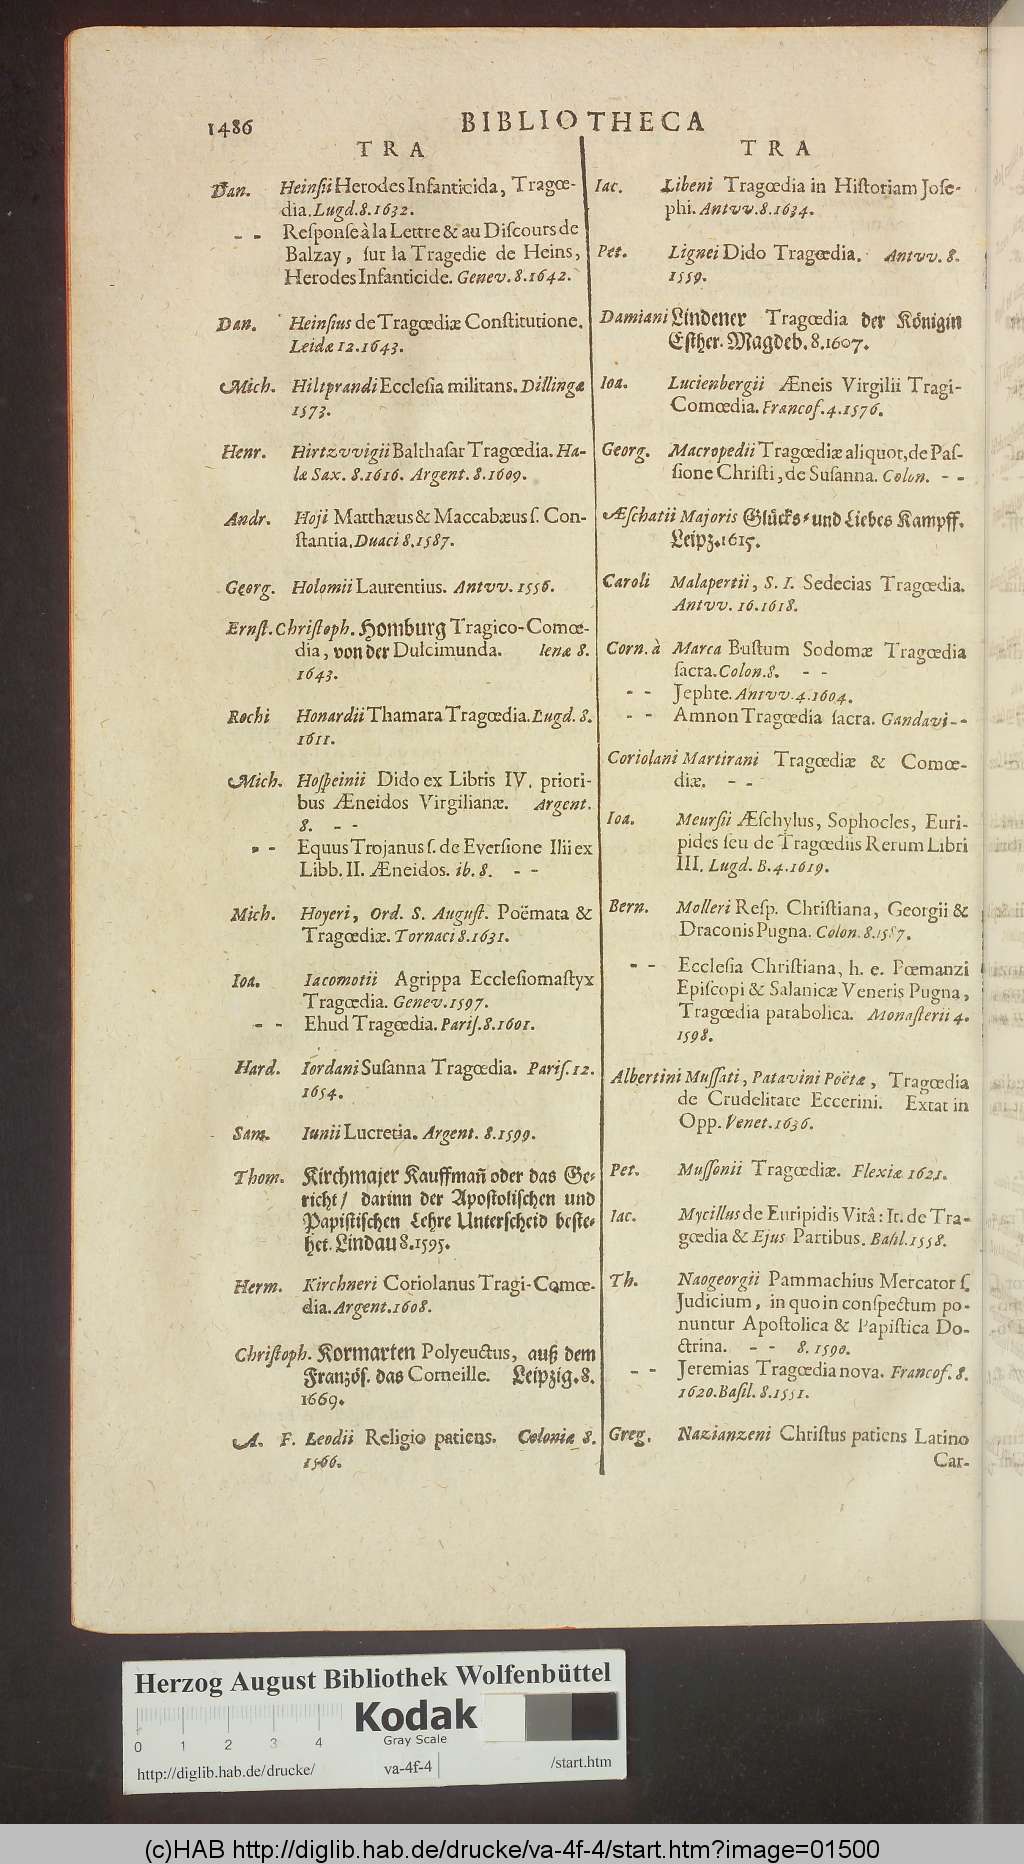 1486 BIBLIOTHECA
TRA
Dan. Heinſii Herodes Infanticida, Tragœ-
dia. Lugd. 8. 1632.
- - Reſponſe à la Lettre & au Diſcours de
Balzay, ſur la Tragedie de Heins,
Herodes Infanticide. Genev. 8. 1642.
Dan. Heinſius de Tragœdiæ Conſtitutione.
Leidæ 12. 1643.
Mich. Hiltprandi Eccleſia militans. Dillingæ
1573.
Henr. Hirtzvvigii Balthaſar Tragœdia. Ha-
læ Sax. 8. 1616. Argent. 8. 1609.
Andr. Hoji Matthæus & Maccabæus ſ. Con-
ſtantia. Duaci 8. 1587.
Georg. Holomii Laurentius. Antvv. 1556.
Ernſt. Chriſtoph. Homburg Tragico-Comœ-
dia, von der Dulcimunda. Ienæ 8.
1643.
Rochi Honardii Thamara Tragœdia. Lugd. 8.
1611.
Mich. Hoſpeinii Dido ex Libris IV. priori-
bus Æneidos Virgilianæ. Argent.
8. - -
- - Equus Trojanus ſ. de Everſione Ilii ex
Libb. II. Æneidos. ib. 8. - -
Mich. Hoyeri, Ord. S. Auguſt. Poëmata &
Tragœdiæ. Tornaci 8. 1631.
Ioa. Iacomotii Agrippa Eccleſiomaſtyx
Tragœdia. Genev. 1597.
- - Ehud Tragœdia. Pariſ. 8. 1601.
Hard. Iordani Suſanna Tragœdia. Pariſ. 12.
1654.
Sam. Iunii Lucretia. Argent. 8. 1599.
Thom. Kirchmajer Kauffmañ oder das Ge-
richt / darinn der Apoſtoliſchen und
Papiſtiſchen Lehre Unterſcheid beſte-
het. Lindau 8. 1595.
Herm. Kirchneri Coriolanus Tragi-Comœ-
dia. Argent. 1608.
Chriſtoph. Kormarten Polyeuctus, auß dem
Französ. das Corneille. Leipzig. 8.
1669.
A. F. Leodii Religio patiens. Coloniæ 8.
1566.
TRA
Iac. Libeni Tragœdia in Hiſtoriam Joſe-
phi. Antvv. 8. 1634.
Pet. Lignei Dido Tragœdia. Antvv. 8.
1559.
Damiani Lindener Tragœdia der Königin
Eſther. Magdeb. 8. 1607.
Ioa. Lucienbergii Æneis Virgilii Tragi-
Comœdia. Francof. 4. 1576.
Georg. Macropedii Tragœdiæ aliquot, de Paſ-
ſione Chriſti, de Suſanna. Colon. - -
Æſchatii Majoris Glücks- und Liebes Kampff.
Leipz. 1615.
Caroli Malapertii, S. I. Sedecias Tragœdia.
Antvv. 16. 1618.
Corn. à Marca Buſtum Sodomæ Tragœdia
ſacra. Colon. 8. - -
- - Jephte. Antvv. 4. 1604.
- - Amnon Tragœdia ſacra. Gandavi - -
Coriolani Martirani Tragœdiæ & Comœ-
diæ. - -
Ioa. Meurſii Æſchylus, Sophocles, Euri-
pides ſeu de Tragœdiis Rerum Libri
III. Lugd. B. 4. 1619.
Bern. Molleri Reſp. Chriſtiana, Georgii &
Draconis Pugna. Colon. 8. 1587.
- - Eccleſia Chriſtiana, h. e. Pœmanzi
Epiſcopi & Salanicæ Veneris Pugna,
Tragœdia parabolica. Monaſterii 4.
1598.
Albertini Muſſati, Patavini Poëtæ, Tragœdia
de Crudelitate Eccerini. Extat in
Opp. Venet. 1636.
Pet. Muſſonii Tragœdiæ. Flexiæ 1621.
Iac. Mycillus de Euripidis Vitâ: It. de Tra-
gœdia & Ejus Partibus. Baſil. 1558.
Th. Naogeorgii Pammachius Mercator ſ.
Judicium, in quo in conſpectum po-
nuntur Apoſtolica & Papiſtica Do-
ctrina. - - 8. 1590.
- - Jeremias Tragœdia nova. Francof. 8.
1620. Baſil. 8. 1551.
Greg. Nazianzeni Chriſtus patiens Latino
Car-
Herzog August Bibliothek Wolfenbüttel
Kodak
Gray Scale
0 1 2 3 4
http://diglib.hab.de/drucke/ va-4f-4 /start.htm
(c)HAB http://diglib.hab.de/drucke/va-4f-4/start.htm?image=01500